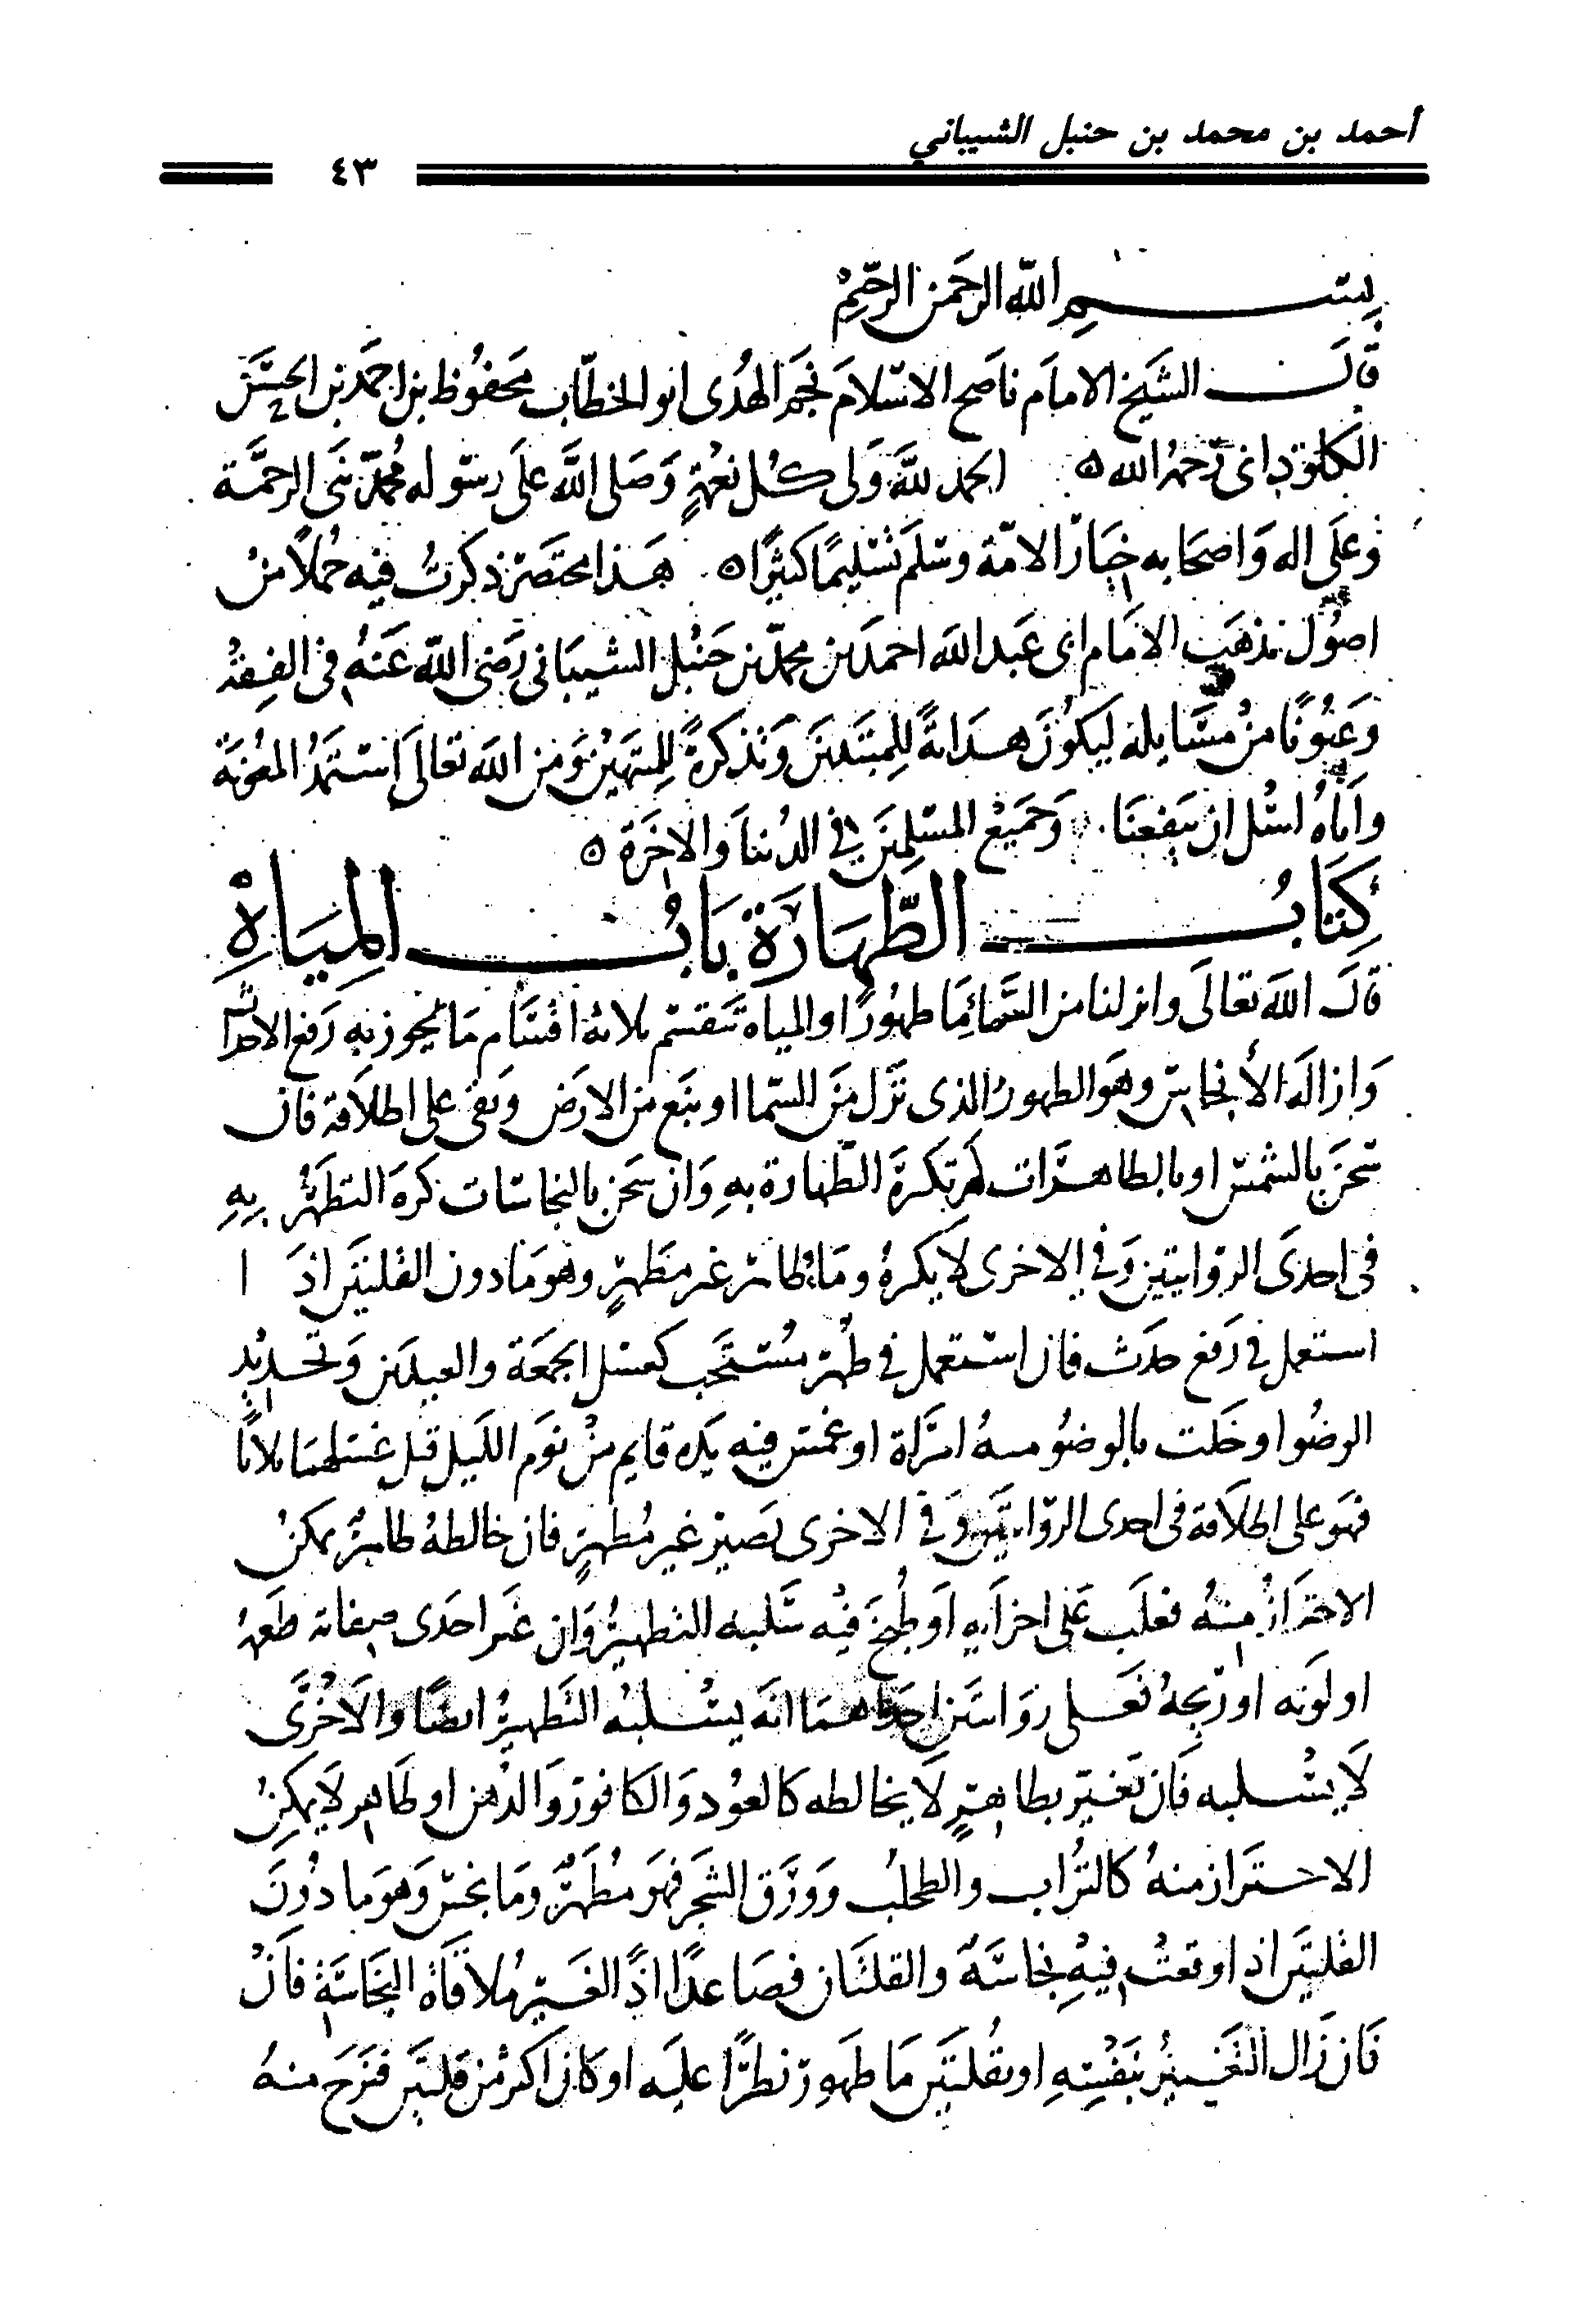 أحمد بن محمد بن حنبل الشيباني
٤٣
بسم الله الرحمن الرحيم
قال الشيخ الامام ناصح الاسلام نجم الهدى ابو الخطاب محفوظ بن احمد بن الحسن
الكلوذاني رحمه الله ه الحمد لله ولي كل نعمة وصلى الله على رسوله محمد نبي الرحمة
وعلى اله واصحابه خيار الامة وسلم تسليما كثيرا ه هذا مختصر ذكرت فيه جملا من
اصول مذهب الامام ابي عبد الله احمد بن محمد بن حنبل الشيباني رضي الله عنه في الفقه
وعيونا من مسايله ليكون هداية للمبتدين وتذكرة للمنتهين ومن الله تعالى استمد المعونة
واياه اسل ان ينفعنا وجميع المسلمين في الدنيا والاخرة ه
كتاب الطهارة باب المياه
قال الله تعالى وانزلنا من السماء ما طهورا والمياه تنقسم ثلاثة اقسام ما يجوز به رفع الاحداث
وازالة الأنجاس وهو الطهور الذي نزل من السما او نبع من الارض وبقي على اطلاقه فان
سخن بالشمس او بالطاهرات لم تكره الطهارة به وان سخن بالنجاسات كره التطهر به
في احدى الروايتين وفي الاخرى لا يكره وما طاهر غير مطهر وهو ما دون القلتين اذ ا
استعمل في رفع حدث فان استعمل في طهر مستحب كغسل الجمعة والعيدين وتجديد
الوضوا و خلت بالوضو منه امراة او غمس فيه يده قايم من نوم الليل قبل غسلهما ثلاثا
فهو على اطلاقه في احدى الروايتين وفي الاخرى يصير غير مطهر فان خالطه طاهر يمكن
الاحتراز منه فغلب على اجزايه او طبخ فيه سلبه التطهير وان غير احدى صفاته طعمه
او لونه او ريحه فعلى روايتين احداهما انه يسلبه التطهير ايضا والاخرى
لا يسلبه فان تغير بطاهر لا يخالطه كالعود والكافور والدهن او طاهر لا يمكن
الاحتراز منه كالتراب والطحلب وورق الشجر فهو مطهر وما نجس وهو ما دون
القلتين اذا وقعت فيه نجاسة والقلتان فصاعدا اذا تغير بملاقاة النجاسة فان
فان زال التغيير بنفسه او بقلتين ما طهور نطرا عليه او كان اكثر من قلتين فنزح منه